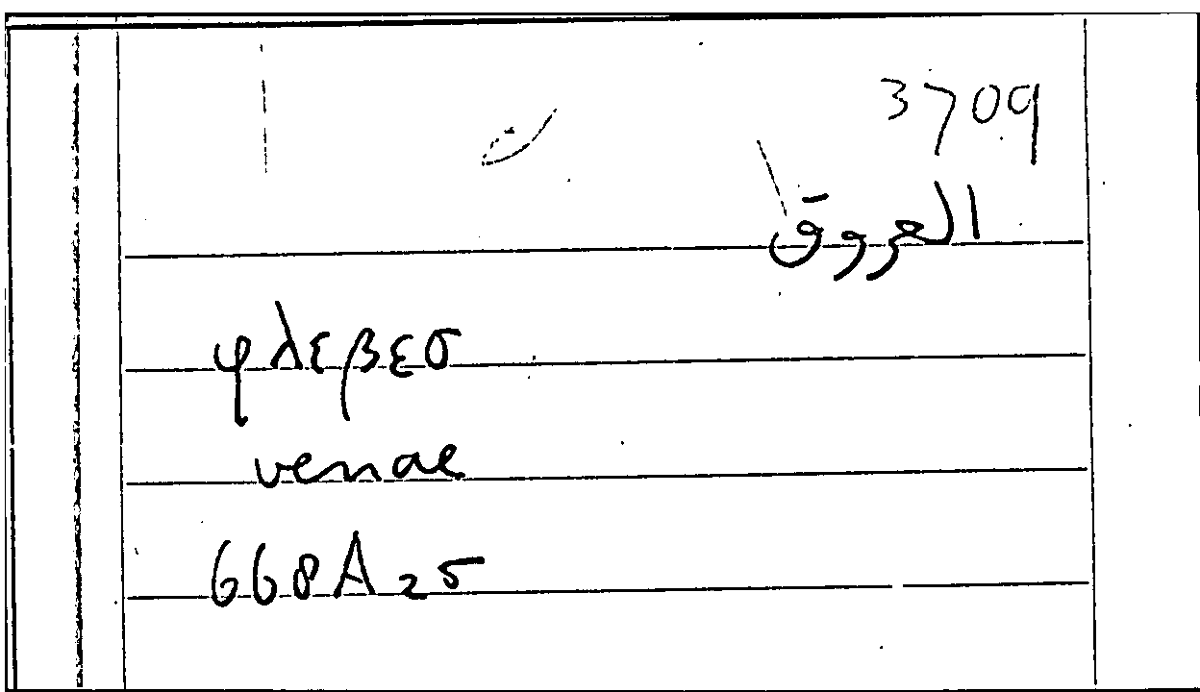 3709
العروق
φλεβεσ
venae
668A25